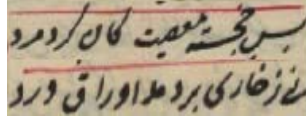 بس خجسته معصیت کان کرد مرد
نے زخاری بردمد اوراق ورد